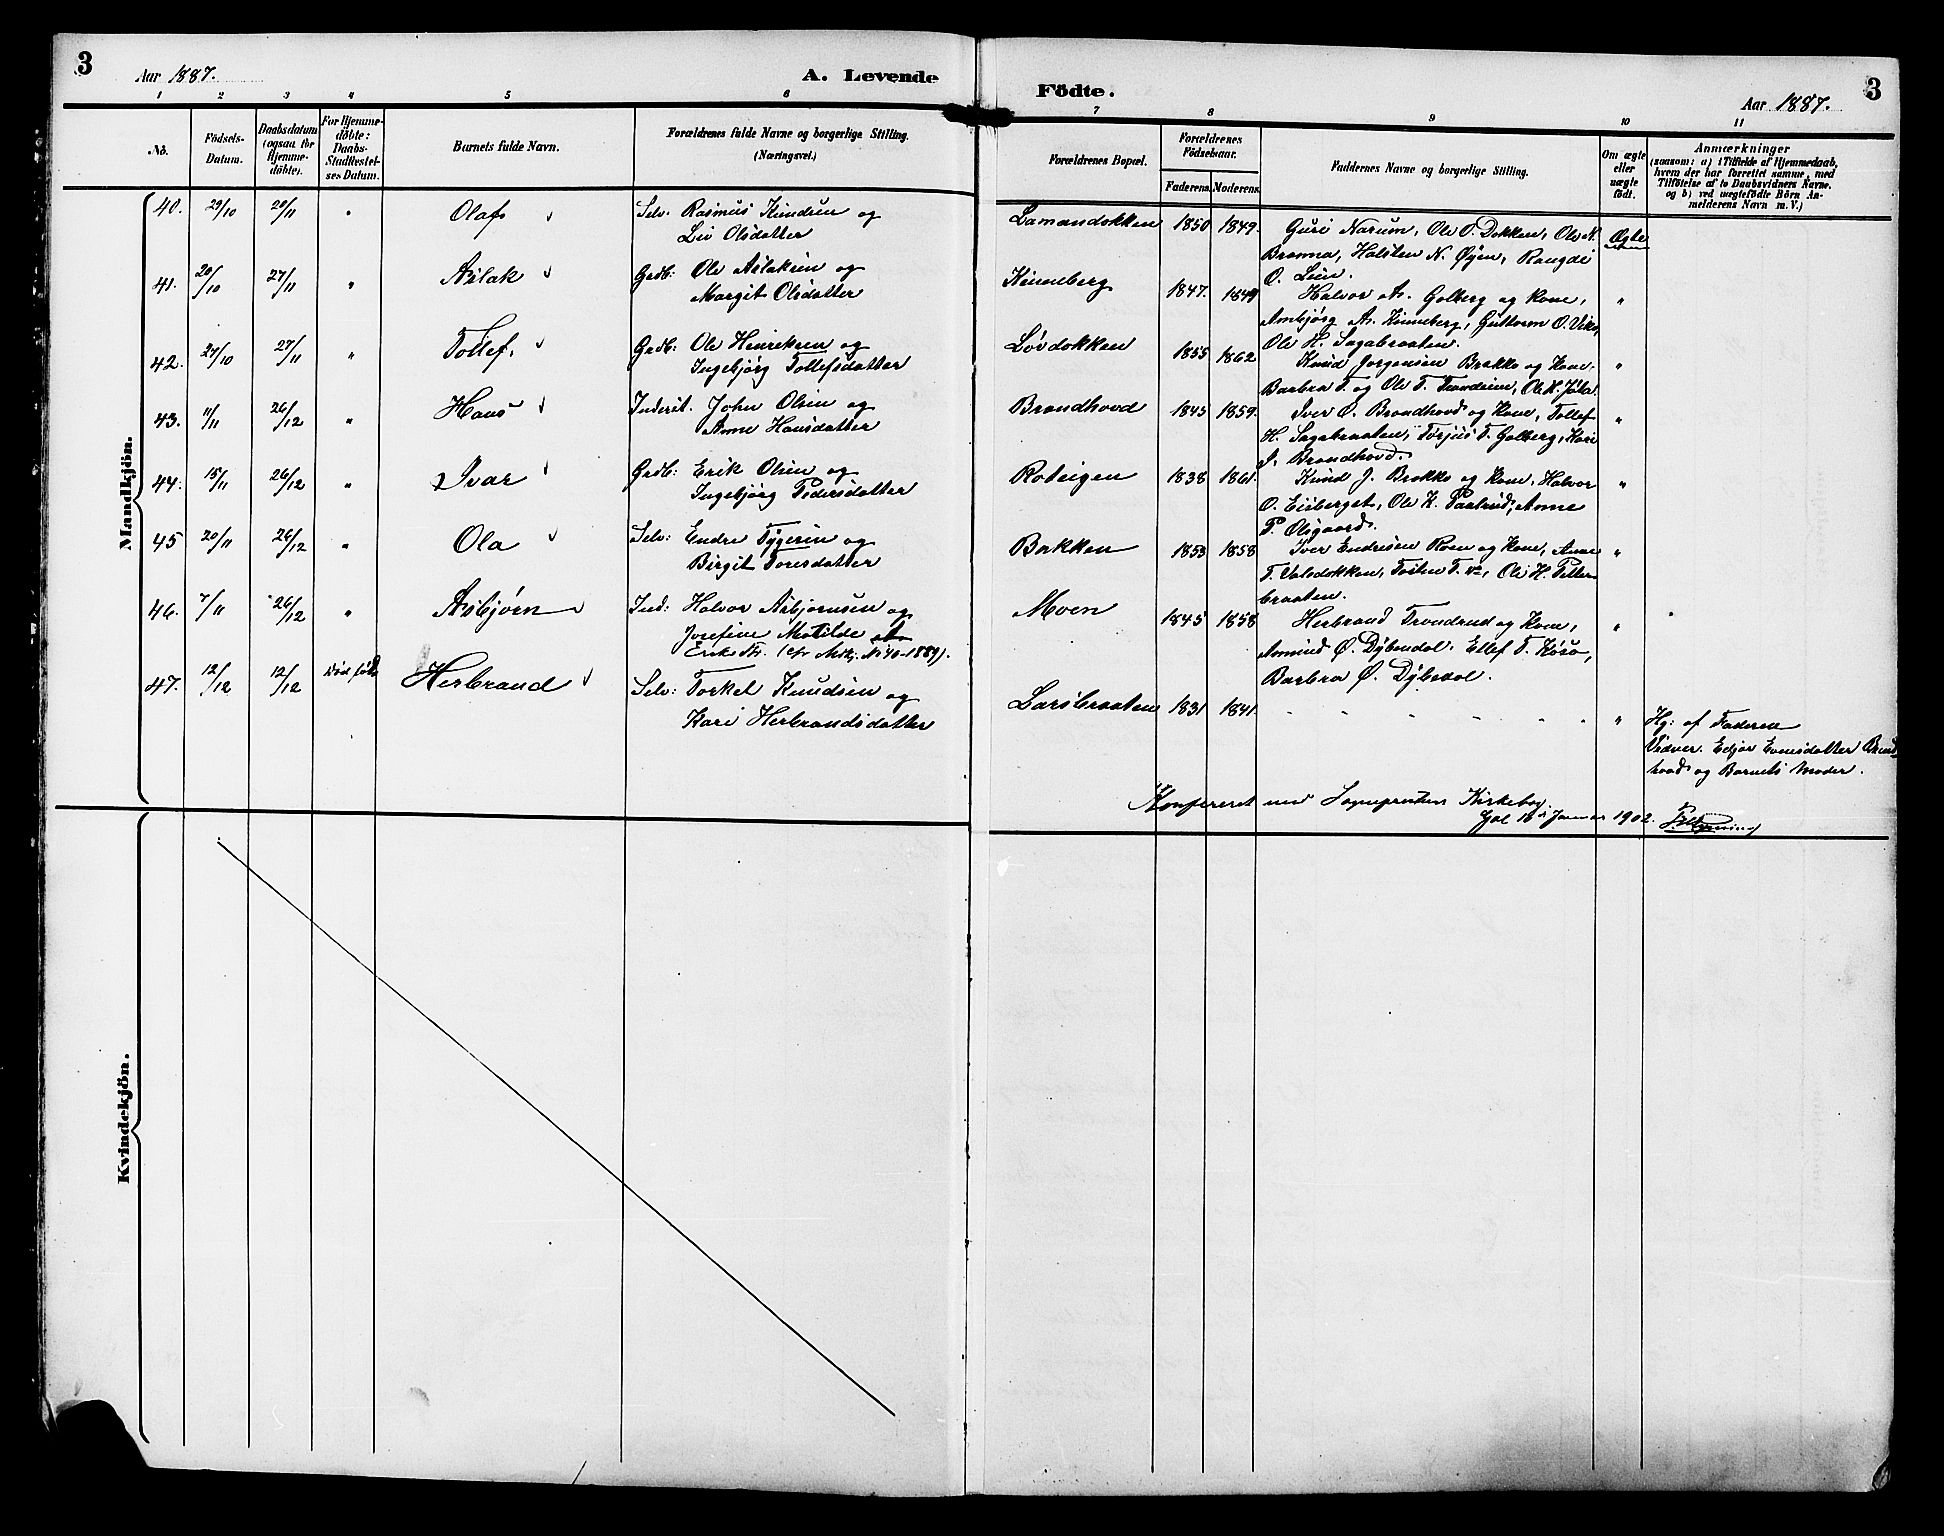 3
Aar 1887.
A. Levende
Födte.
Aar 1887.
3
1 2 3 4 5 6 7 8 9 10 11
No.
Födsels-
Datum.
Daabsdatum
(ogsaa for
Hjemme-
döbte).
For Hjemme-
döbte:
Daabs-
Stadfæstel-
ses Datum.
Barnets fulde Navn.
Forældrenes fulde Navne og borgerlige Stilling.
(Næringsvei.)
Forældrenes Bopæl.
Forældrenes
Födselsaar.
Faderens. Moderens.
Faddernes Navne og borgerlige Stilling.
Om ægte
eller
uægte
födt.
Anmærkninger
(saasom: a) i Tilfælde af Hjemmedaab,
hvem der har forrettet samme, med
Tilföielse af to Daabsvidners Navne,
og b) ved uægtefödte Börn An-
melderens Navn m. V.)
Mandkjön.
40. 29/10 20/11 " Olaf Selv. Rasmus Knudsen og
Liv Olsdatter
Lamandokken 1850 1849. Guri Narum, Ole O. Dokken, Ole N. Ægte
Bromma, Halsten N. Øyen, Rangdi
O. Lein.
41. 20/10 27/11 " Aslak Grdb: Ole Aslaksen og
Margit Olsdatter
Kinneberg 1847. 1849 Halvor As. Golberg og Kone, "
Ambjørg As. Kinneberg, Guttorm O. Viko,
Ole H. Sagabraaten.
42. 27/10 27/11 " Tollef. Grdb: Ole Henriksen og
Ingebjørg Tollefsdatter
Løvdokken 1855 1862 Knud Jorgensen Brakko og Kone, "
Barbra T. og Ole T. Trondrim, Ole H.
43. 11/11 26/12 " Hans Inderst. John Olsen og
Anne Hansdatter
Brandhovd 1845 1859. Iver O. Brandhovd og Kone, Tollef "
H. Sagabraaten, Torjus T. Golberg, Kari
J. Brandhovd.
44. 15/11 26/12 " Ivar Grdb: Erik Olsen og
Ingebjørg Pedersdatter
Roteigen 1838 1861. Knud J. Brakko og Kone, Halvor "
O. Eisberget, Ole K. Paalrud, Anne
P. Olsgaard.
45 20/11 26/12 " Ola Selv: Endre Tygesen og
Birgit Toresdatter
Bakken 1853 1858 Iver Endresen Roen og Kone, Anne "
T. Valsdokken, Tosten T. Ole H. Petter
braaten.
46. 7/11 26/12 " Asbjørn Ind: Halvor Asbjornsen og
Josefine Motilde
Eriks dtr. (cfr Mtkj. No 40-1889).
Moen 1845 1858 Herbrand Trondrud og Kone, "
Ammund Ø. Dybendal. Ellef T. Køso,
Barbra Ø. Dybedal.
47. 12/12 12/12 Død født Herbrand Selv: Torkel Knudsen og
Kari Herbrandsdatter
Larsbraaten 1831 1841. " " " " " " "
Hj: af Faderen
Vidner. Edjør Evensdatter Brand
hovd og Barnets Moder.
Konfereret med Sognepræstens Kirkebog.
Gol 16de Januar 1902.
Kvindekjön.